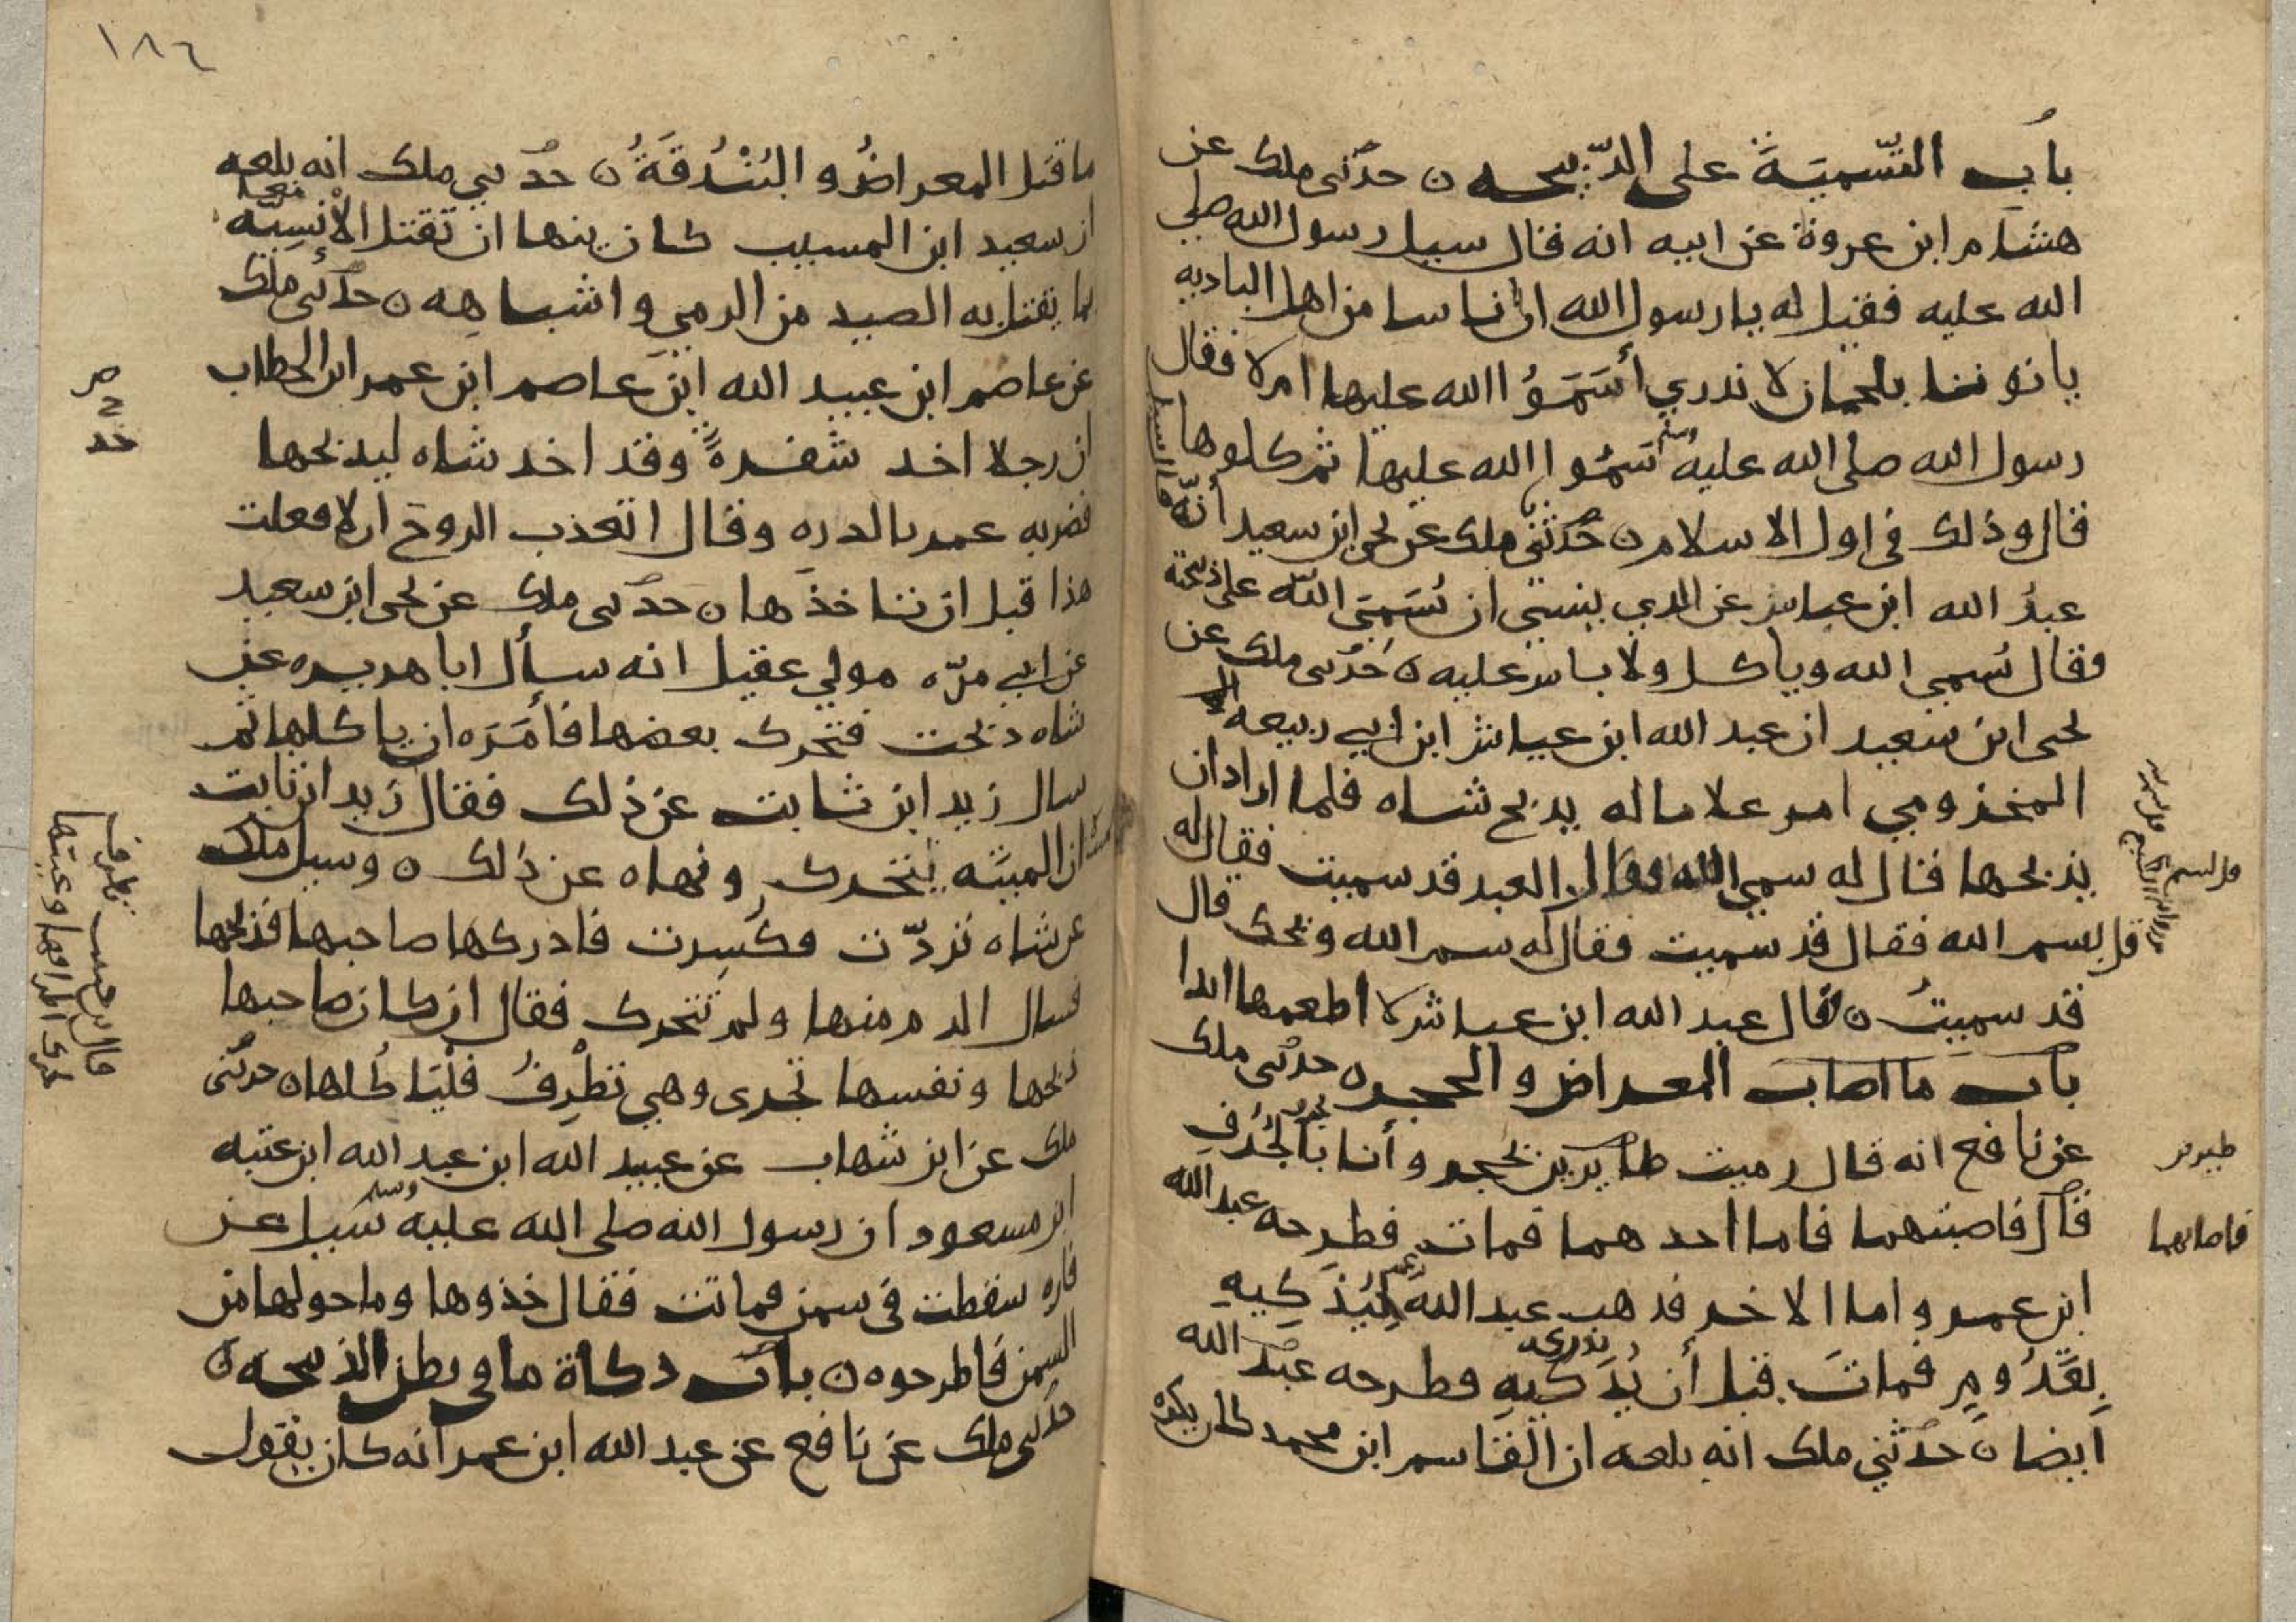 باب التسمية على الذبيحه ن حدثني ملك عن
هشام ابن عروة عن ابيه انه قال سيل رسول الله صلى
الله عليه فقيل له يا رسول الله ان ناسا من اهل الباديه
ياتوننا بلحمان لا ندري أسَمَّوُا الله عليها ام لا فقال
رسول الله صلى الله عليه وسلم سَمُّوا الله عليها ثم كلوها
قال وذلك في اول الاسلام ن حدثني ملك عن يحيى ابن سعيد أنّه
عبدُ الله ابن عباس عن الذي ينسي ان يُسَمِّيَ الله على ذبيحته
وقال يُسمي الله وياكل ولا باس عليه ن حدثني ملك عن
يحيى ابن سعيد ان عبد الله ابن عياش ابن ابي ربيعه
المخزومي امر غلاما له يذبح شاه فلما اراد ان
يذبحها قال له سمي الله فقال العبد قد سميت فقال له
قل بسم الله فقال قد سميت فقال له سم الله ويحك قال
قد سميتُ ن قال عبد الله ابن عياش لا اطعمها ابدا
باب ما اصاب المعراض والحجر ن حدثني ملك
عن نافع انه قال رميت طايرين بحجر وأنا بالجُرُفِ
طيرين
قال فاصبتهما فاما احدهما فمات فطرحه عبد الله
فاصابهما
ابن عمر واما الاخر فذهب عبد الله يُذَكِيهِ
بِقَدُومٍ فماتَ قبل أن يُذَكيهِ فطرحه عبدُ الله
ايضا ن حدثني ملك انه بلغه ان القاسم ابن محمد كان يكره
١٨٦
ما قتل المعراضُ والبُنْدُقَةُ ن حدثني ملك انه بلغه
ان سعيد ابن المسيب كان ينها ان تقتل الإنْسِيّه
بما يقتل به الصيد من الرمي واشباهِهِ ن حدثني ملك
عن عاصم ابن عبيد الله ابن عاصم ابن عمر ابن الخطاب
ان رجلا اخد شفرةً وقد اخد شاه ليدبحها
فضربه عمر بالدره وقال اتعذب الروح الا فعلت
هذا قبل ان تاخذها ن حدثني ملك عن يحيى ابن سعيد
عن ابي مرّه مولي عقيل انه سأل ابا هريره عن
شاه دبحت فتحرك بعضها فأمَرَه ان ياكلها ثم
سال زيد ابن ثابت عن ذلك فقال زيد ابن ثابت
ان الميتَه تتحرك ونهاه عن ذلك ن وسيل ملك
عن شاه تردّت فكُسِرت فادركها صاحبها فذبحها
فسال الدم منها ولم تتحرك فقال ان كان صاحبها
ذبحها ونفسها تجرى وهي تطرِفُ فليَاكُلها ن حدثني
ملك عن ابن شهاب عن عبيد الله ابن عبد الله ابن عتبه
ابن مسعود ان رسول الله صلى الله عليه وسلم سُيل عن
فاره سقطت في سمن فماتت فقال خذوها وما حولها من
السمن فاطرحوه ن باب دكاة ما في بطن الذبيحه ن
حدثني ملك عن نافع عن عبد الله ابن عمر انه كان يقول